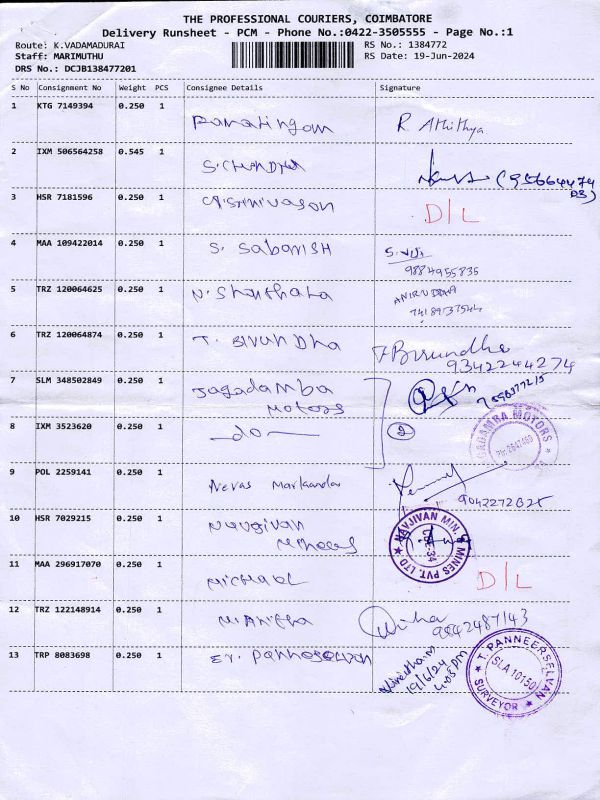 THE PROFESSIONAL COURIERS, COIMBATORE
Delivery Runsheet - PCM - Phone No.:0422-3505555 - Page No.:1
Route: K.VADAMADURAI RS No.: 1384772
Staff: MARIMUTHU RS Date: 19-Jun-2024
DRS No.: DCJB138477201
S No Consignment No Weight PCS Consignee Details Signature
1 KTG 7149394 0.250 1 R. Athithya
2 IXM 506564258 0.545 1
3 HSR 7181596 0.250 1 D/L
4 MAA 109422014 0.250 1 S. SABARISH
9884955835
5 TRZ 120064625 0.250 1 ANIRUDDHA
6 TRZ 120064874 0.250 1 T. BIVUNDHA
9342244274
7 SLM 348502849 0.250 1 Jagadamba
Motors
8 IXM 3523620 0.250 1 -do- 2
JAGADAMBA MOTORS
9 POL 2259141 0.250 1
10 HSR 7029215 0.250 1
NAVJIVAN MIN. & MINES PVT. LTD
11 MAA 296917070 0.250 1 MICHAEL D/L
12 TRZ 122148914 0.250 1 M. Anitha
9842487143
13 TRP 8083698 0.250 1 Er. Panneselvan
19/6/24
4.05pm
T. PANNEERSELVAN
SLA 10150
SURVEYOR